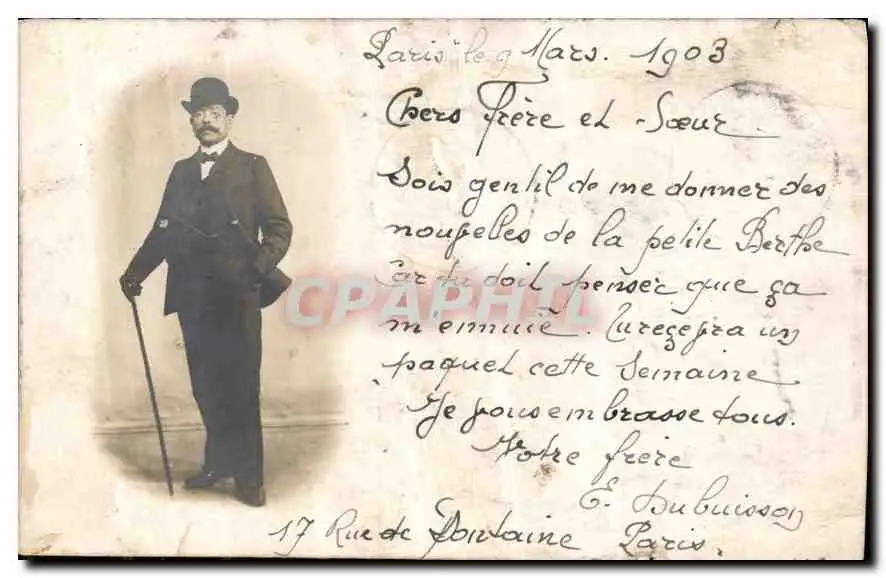 Paris le 9 Mars. 1903
Chers Frère et Sœur
Sois gentil de me donner des
nouvelles de la petite Berthe
Car tu doit penser que ça
m'ennuie. Tu recevra un
paquet cette Semaine
Je vous embrasse tous.
Votre frère
E. Dubuisson
17 Rue de Fontaine Paris.
CPAPHIL